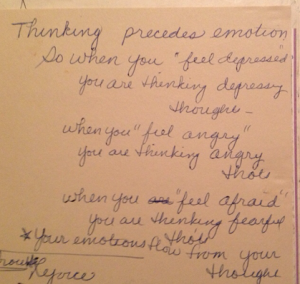 Thinking precedes emotion
So when you "feel depressed"
you are thinking depressy
thoughts -
when you "feel angry"
you are thinking angry
thots
when you are "feel afraid"
you are thinking fearful
thots
* Your emotions flow from your
thought
Rejoice